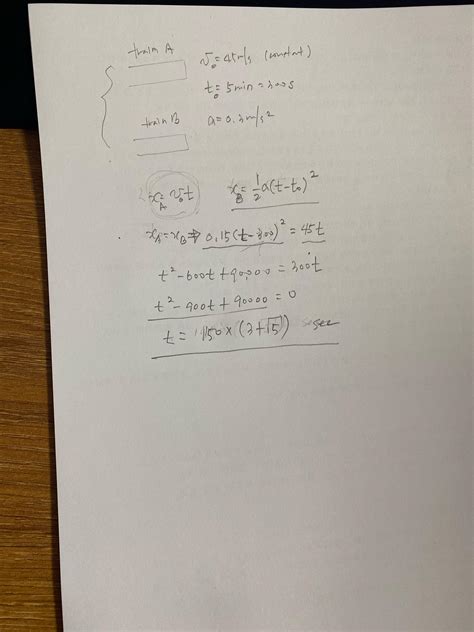 train A v₀ = 45m/s (constant)
t₀ = 5min = 300s
train B a = 0.3m/s²
x_A = v₀t x_B = ½a(t-t₀)²
x_A = x_B ⇒ 0.15(t-300)² = 45t
t² - 600t + 90000 = 300t
t² - 900t + 90000 = 0
t = 150 × (3+√5) sec